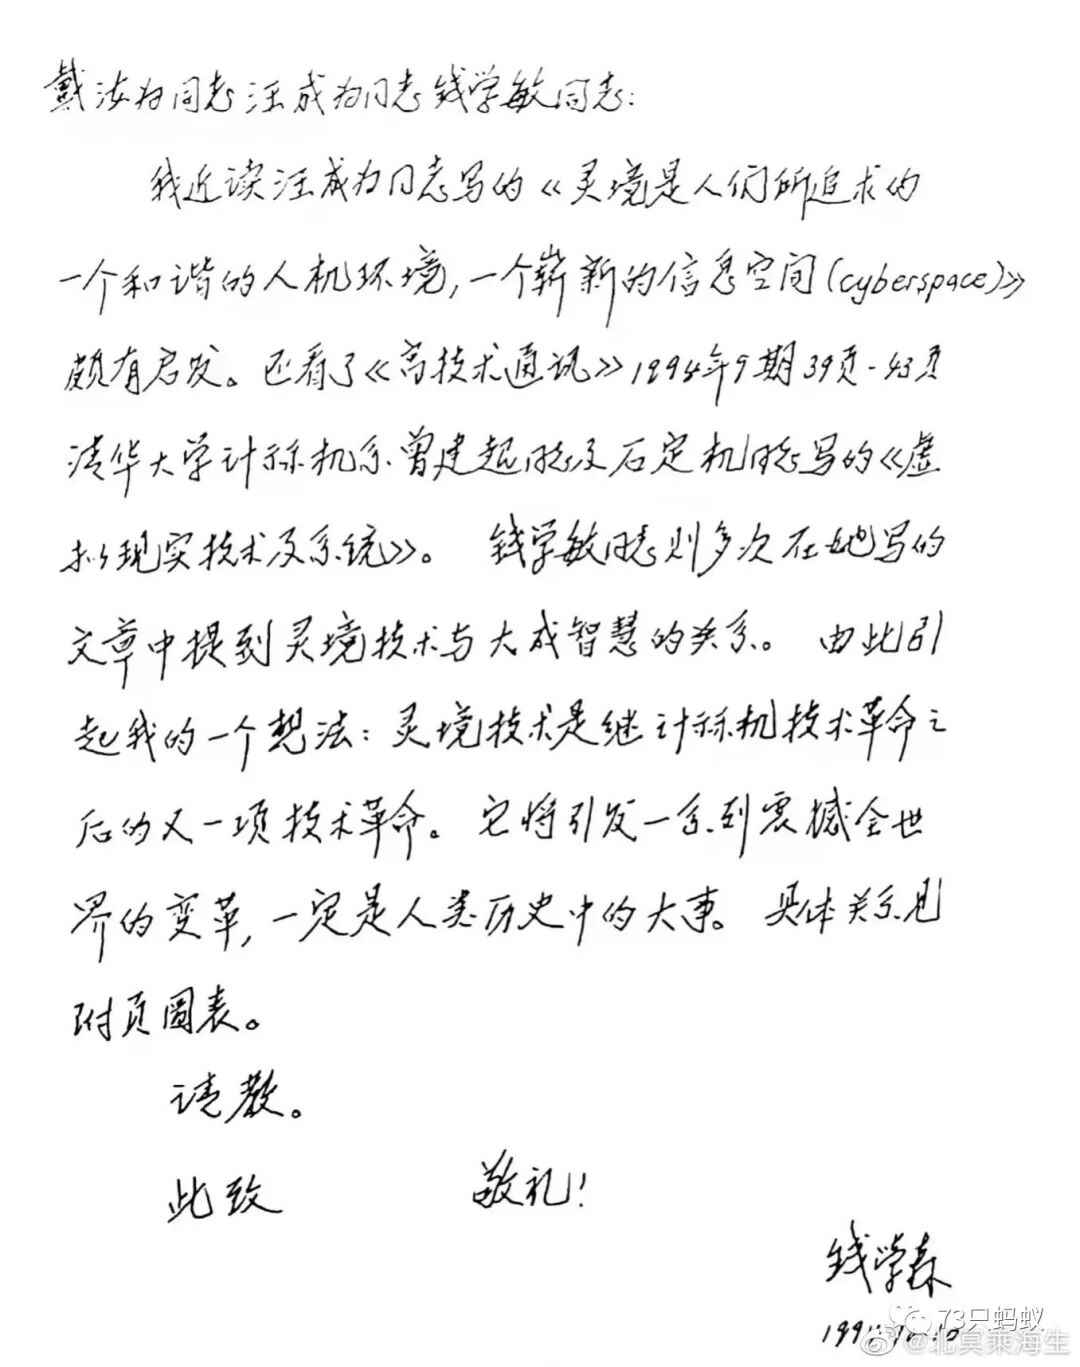 戴汝为同志汪成为同志钱学敏同志:
我近读汪成为同志写的《灵境是人们所追求的
一个和谐的人机环境,一个崭新的信息空间(cyberspace)》
颇有启发。还看了《高技术通讯》1994年9期39页-43页
清华大学计祘机系曾建超同志及石定机同志写的《虚
拟现实技术及系统》。钱学敏同志则多次在她写的
文章中提到灵境技术与大成智慧的关系。由此引
起我的一个想法:灵境技术是继计祘机技术革命之
后的又一项技术革命。它将引发一系列震撼全世
界的变革,一定是人类历史中的大事。具体关系见
附页圖表。
请教。
此致 敬礼!
钱学森
73只蚂蚁
1994.10.10
@北冥乘海生